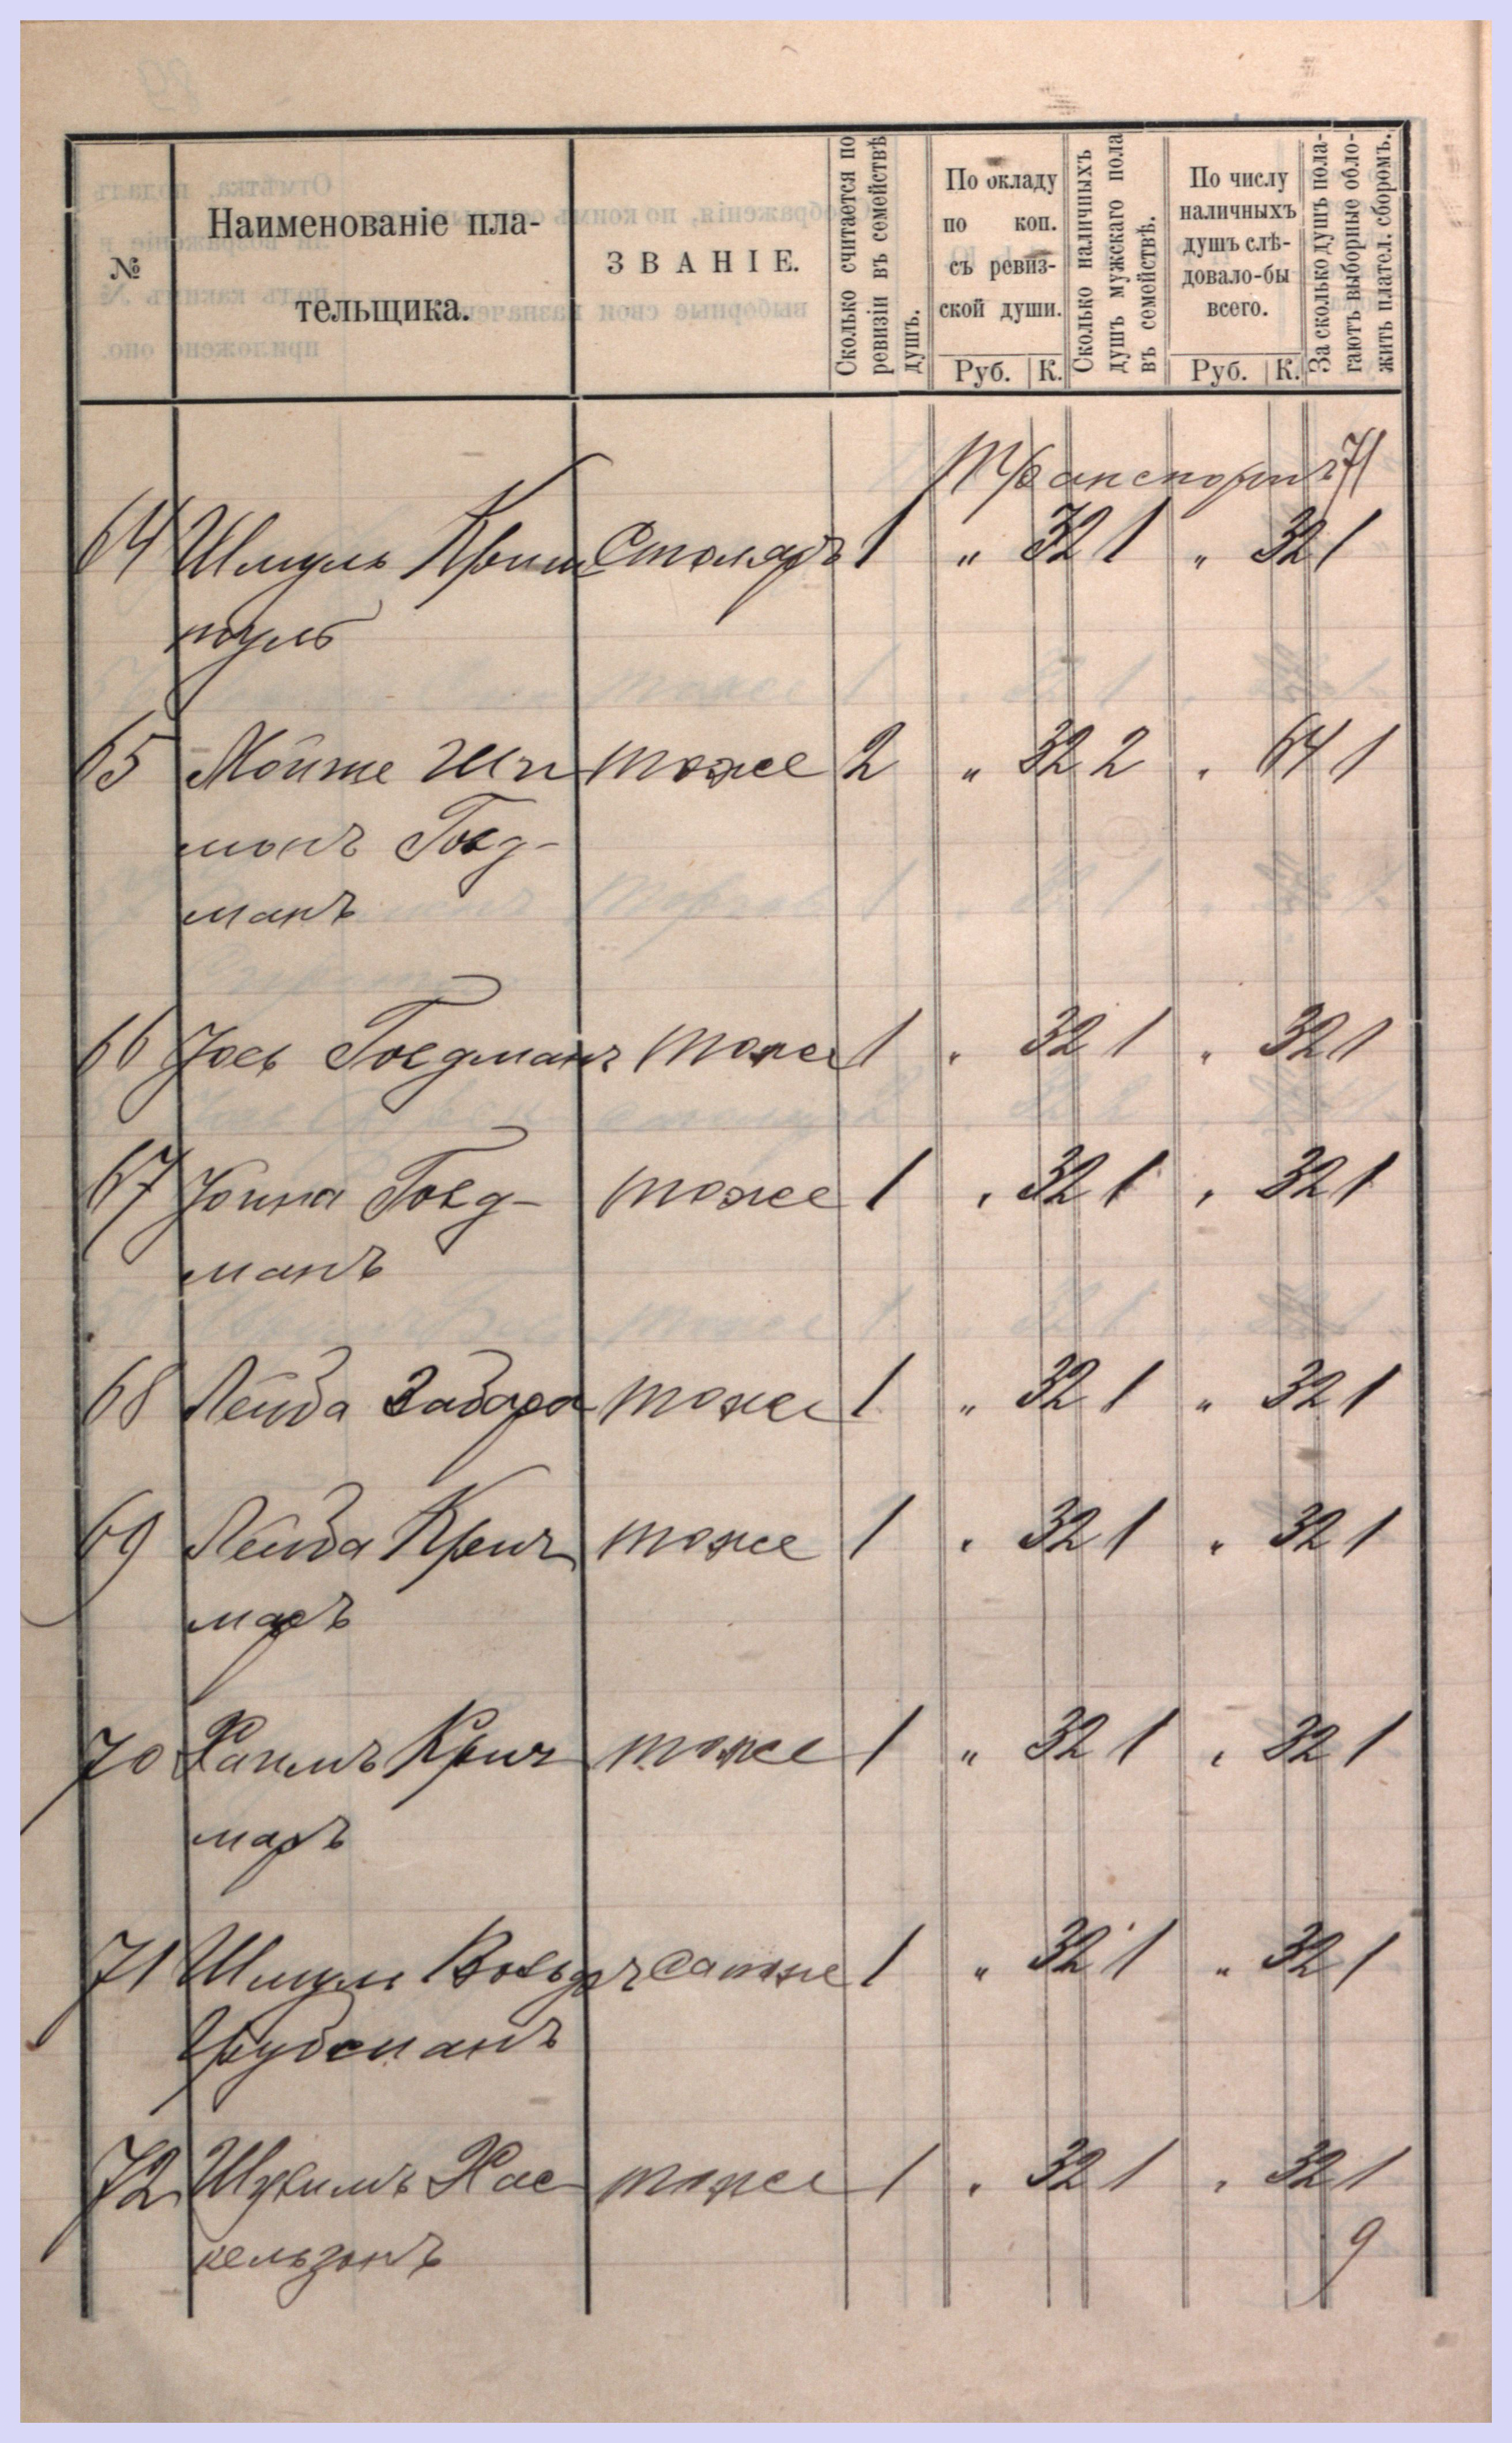 №
Наименованіе пла-
тельщика.
ЗВАНІЕ.
Сколько считается по
ревизіи въ семействѣ
душъ.
По окладу
по коп.
съ ревиз-
ской души.
Руб. К.
Сколько наличныхъ
душъ мужскаго пола
въ семействѣ.
По числу
наличныхъ
душъ слѣ-
довало-бы
всего.
Руб. К.
За сколько душъ пола-
гаютъ выборные обло-
жить плател. сборомъ.
Транспортъ 71
64 Шмуль Криш Столяръ 1 „ 32 1 „ 32 1
65 Мойше Ши тоже 2 „ 32 2 „ 64 1
монъ ГоЛд-
манъ
66 Іось Голдманъ тоже 1 „ 32 1 „ 32 1
67 Іойна Голд- тоже 1 „ 32 1 „ 32 1
манъ
68 Лейба Забара тоже 1 „ 32 1 „ 32 1
69 Лейба Крич тоже 1 „ 32 1 „ 32 1
маръ
70 Хаимъ Крич тоже 1 „ 32 1 „ 32 1
маръ
71 Шмуль 1 „ 32 1 „ 32 1
72 Хас тоже 1 „ 32 1 „ 32 1
кельзонъ
9